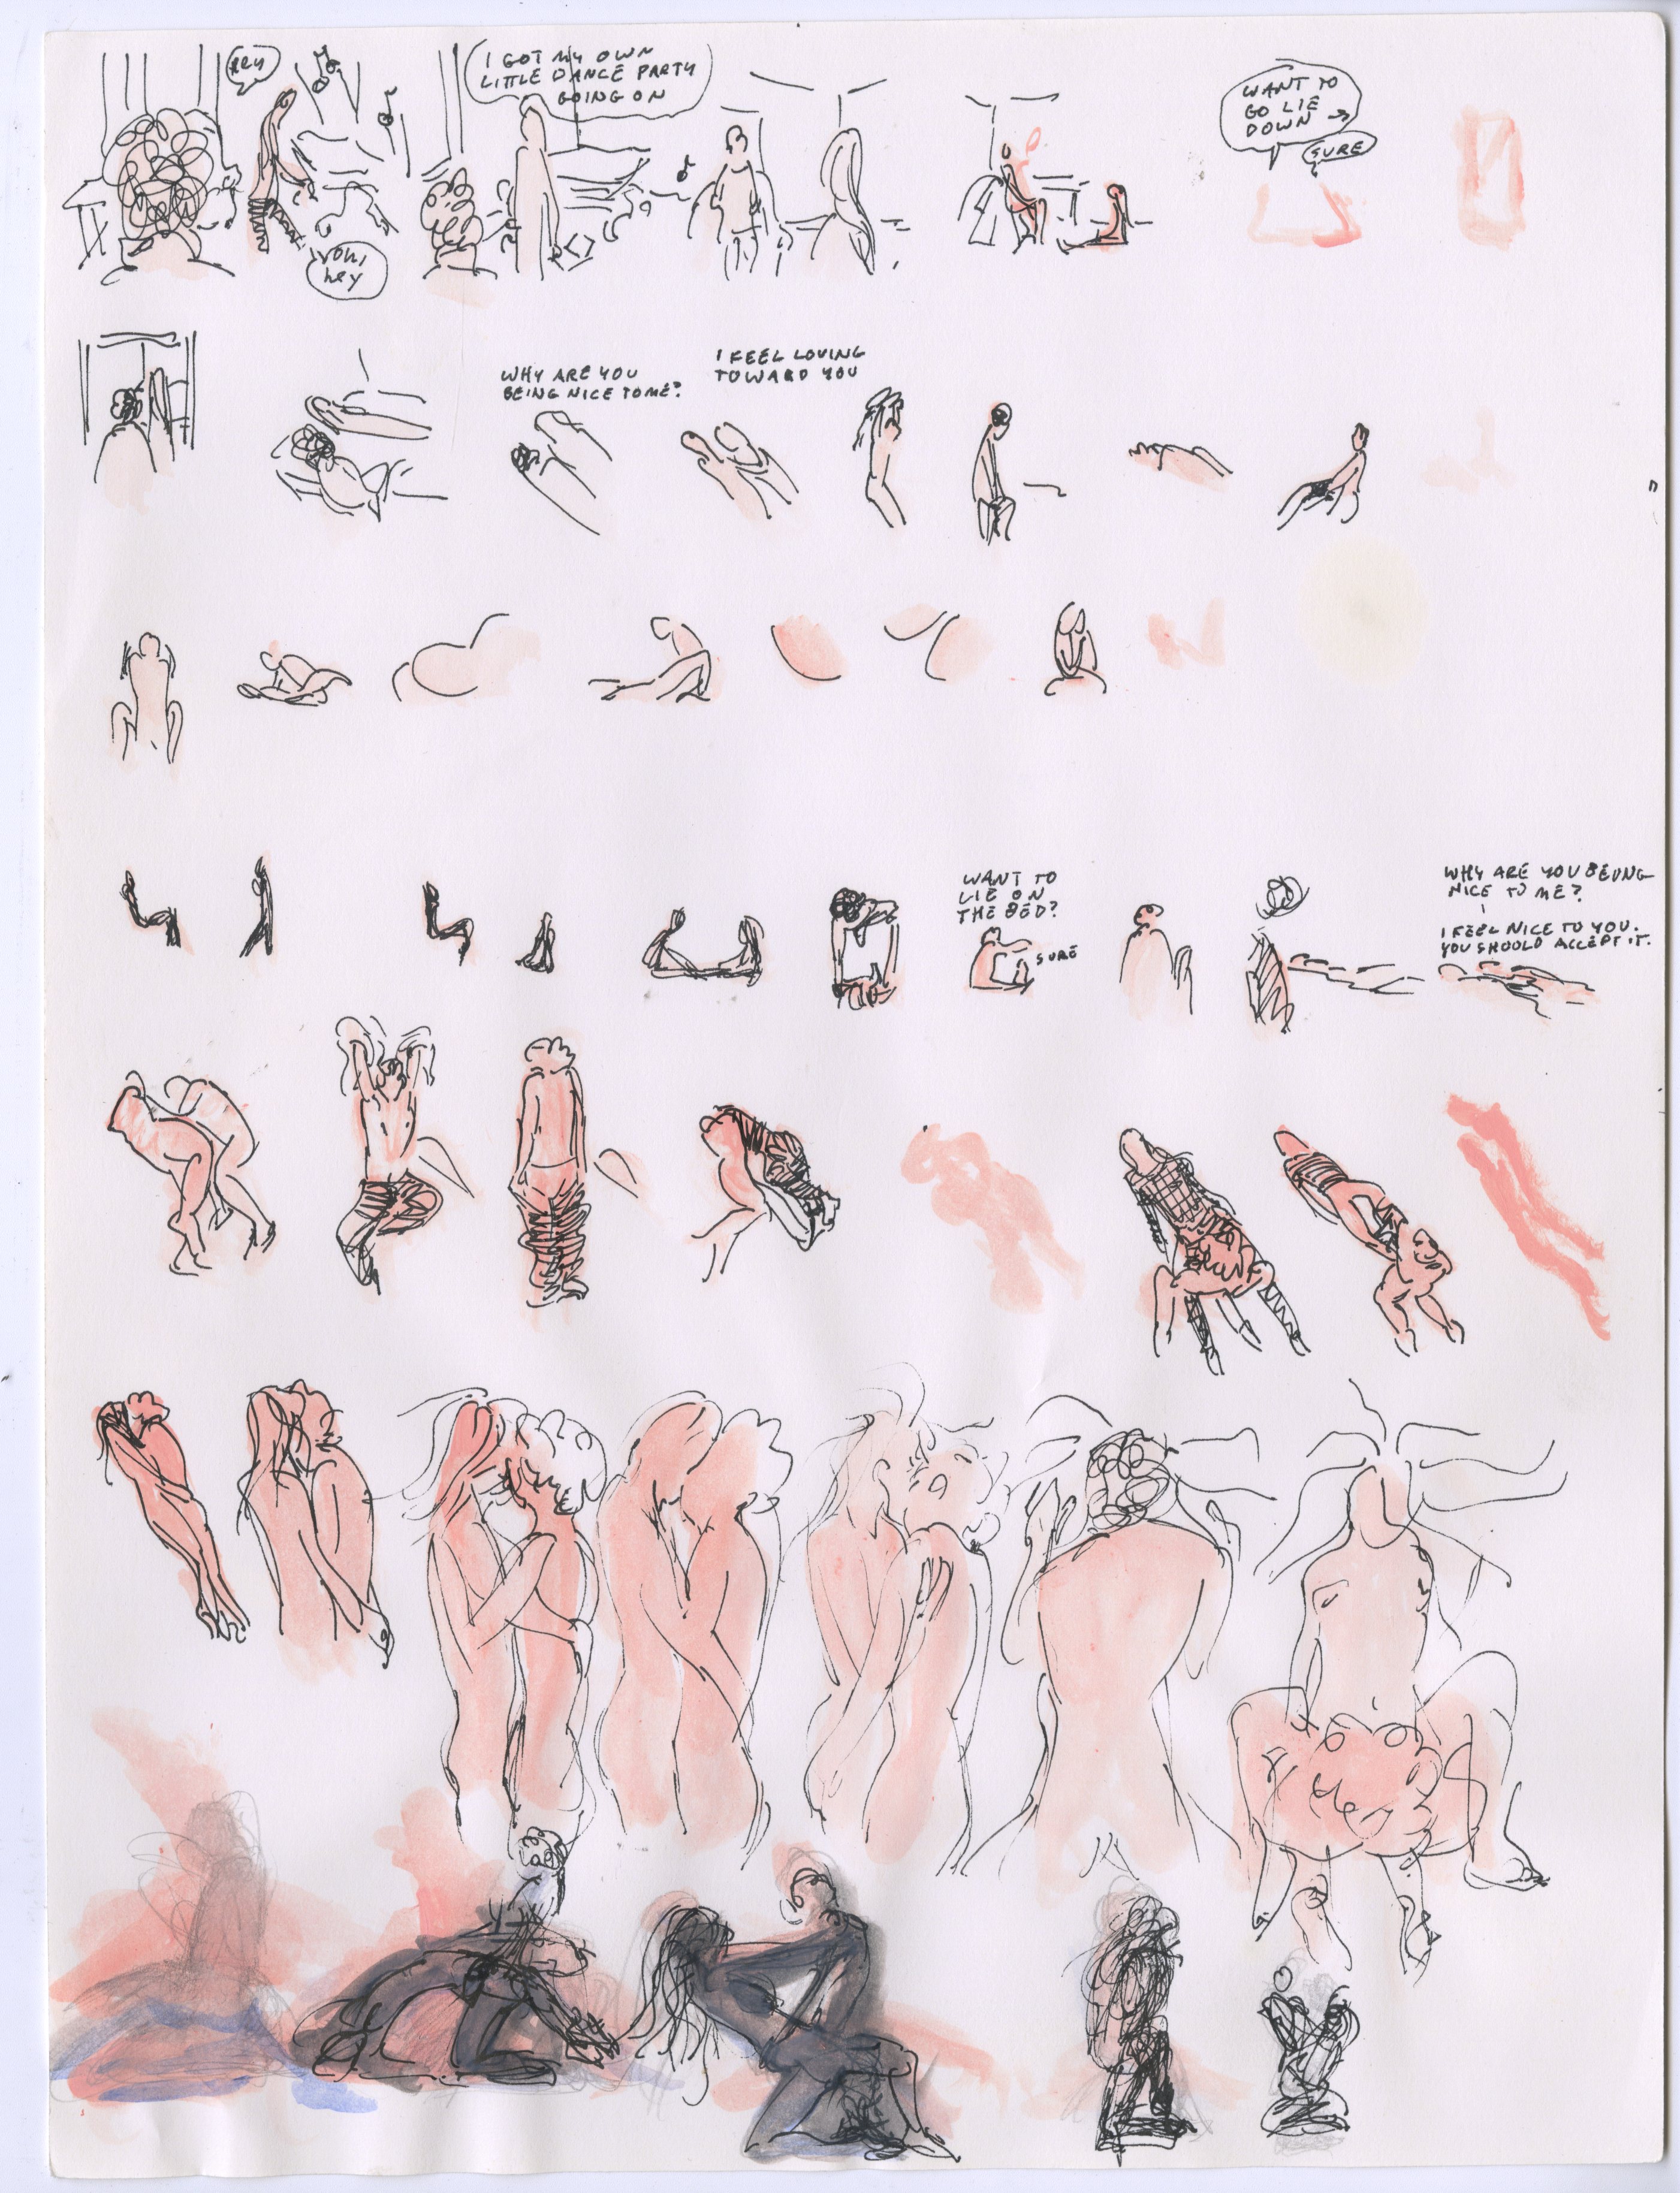 HEY
OH,
hey
I GOT MY OWN
LITTLE DANCE PARTY
GOING ON
WANT TO
GO LIE
DOWN
SURE
WHY ARE YOU
BEING NICE TO ME?
I FEEL LOVING
TOWARD YOU
WANT TO
LIE ON
THE BED?
SURE
WHY ARE YOU BEUNG
NICE TO ME?
I FEEL NICE TO YOU.
YOU SHOULD ACCEPT IT.